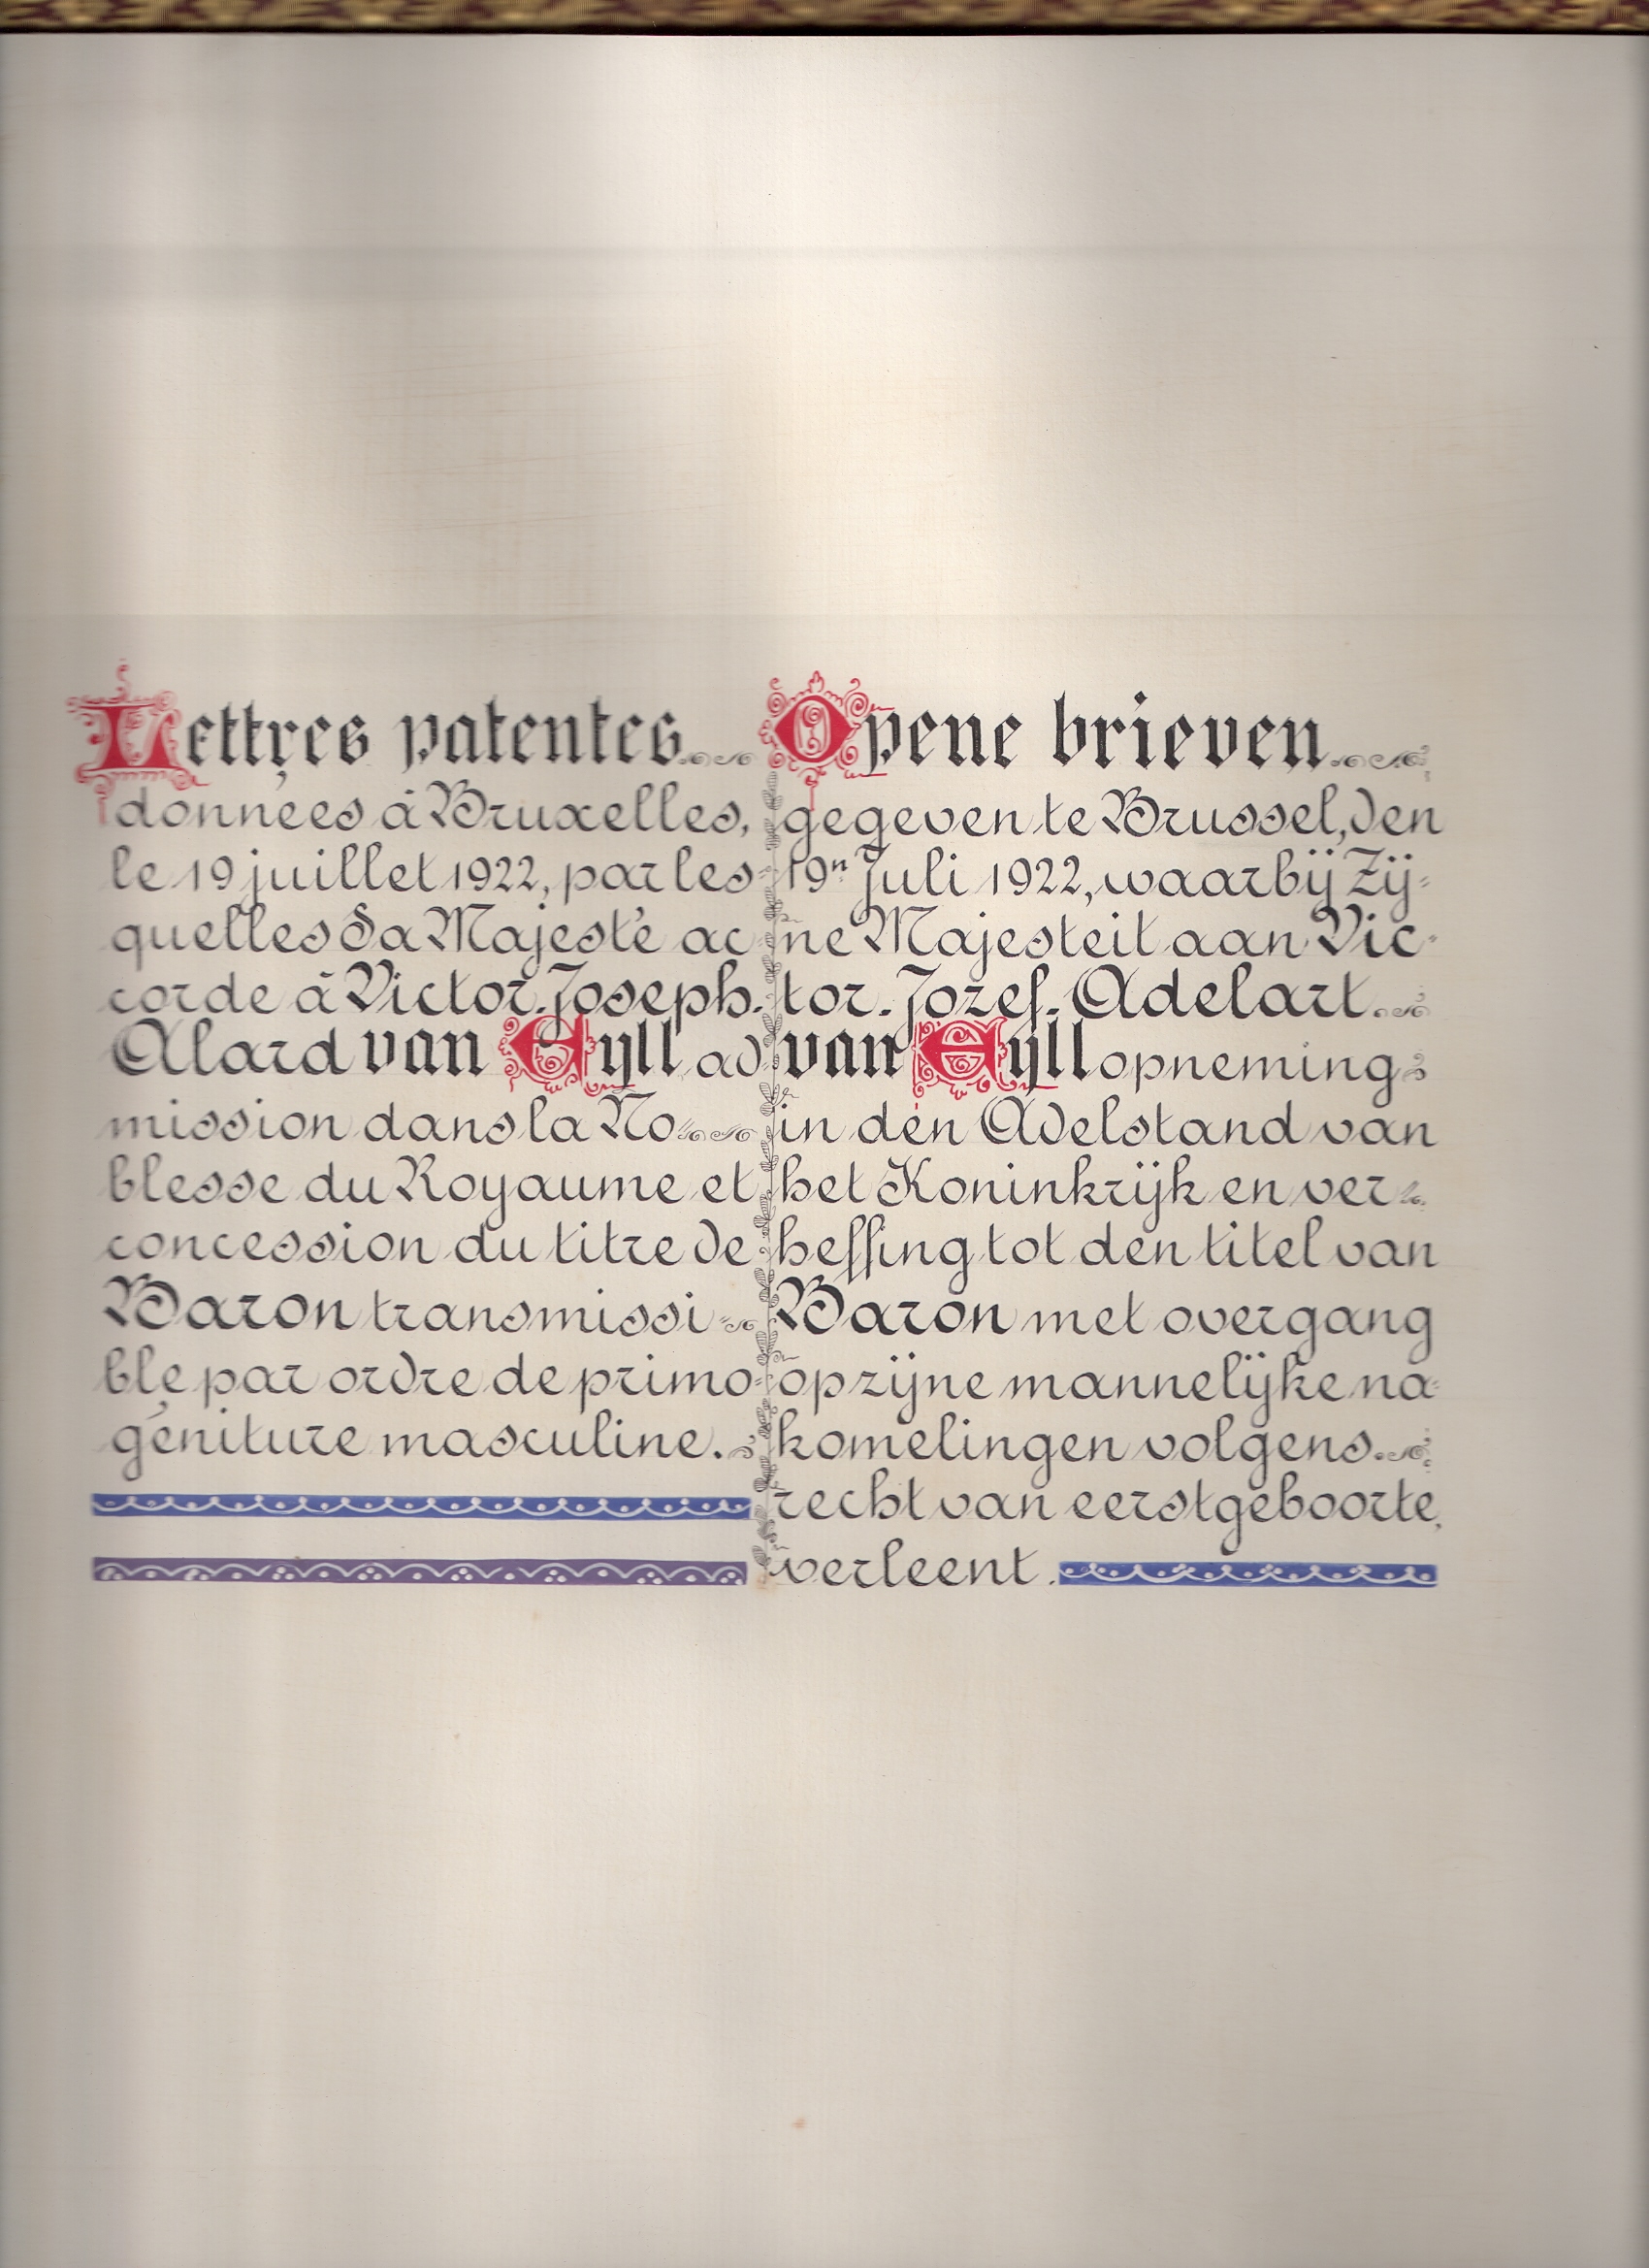 Lettres patentes
données à Bruxelles,
le 19 juillet 1922, par les-
quelles Sa Majesté ac-
corde à Victor-Joseph-
Alard van Eyll ad
mission dans la No-
blesse du Royaume et
concession du titre de
Baron transmissi-
ble par ordre de primo-
géniture masculine.
Opene brieven
gegeven te Brussel, den
19n Juli 1922, waarbij Zij-
ne Majesteit aan Vic-
tor-Jozef-Adelart
van Eyll opneming
in den Adelstand van
het Koninkrijk en ver-
heffing tot den titel van
Baron met overgang
op zijne mannelijke na-
komelingen volgens
recht van eerstgeboorte,
verleent.